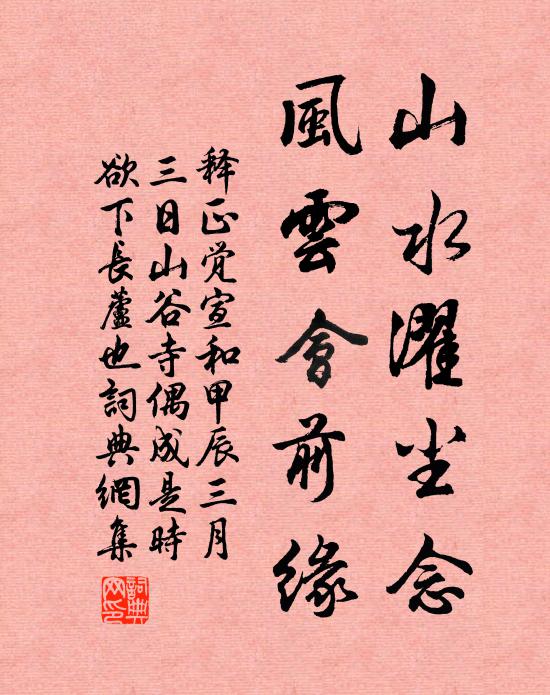 山水濯尘念
風雲會前緣
释正觉宣和甲辰三月
三日山谷寺偶成是時
欲下長蘆也詞典網集
詞典網印